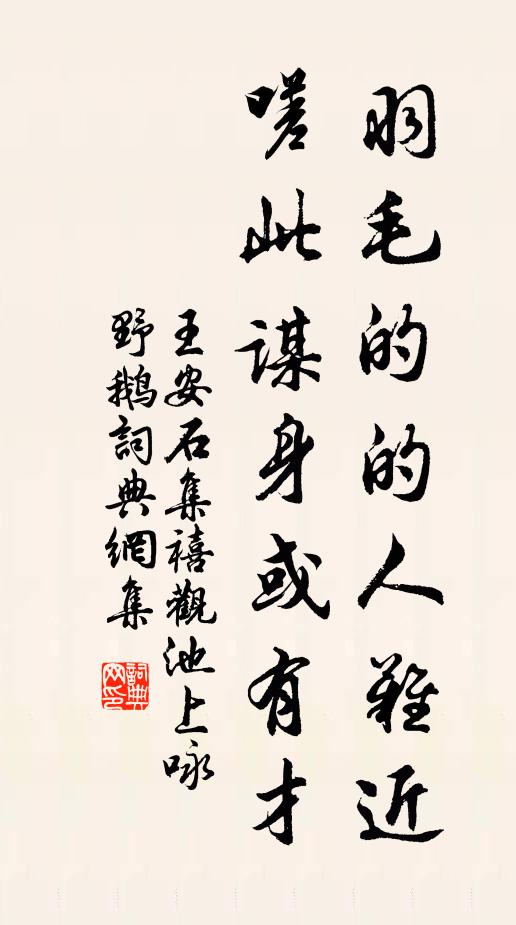 羽毛的的人難近
嗟此謀身或有才
王安石集禧觀池上咏
野鵝詞典網集
詞典網印